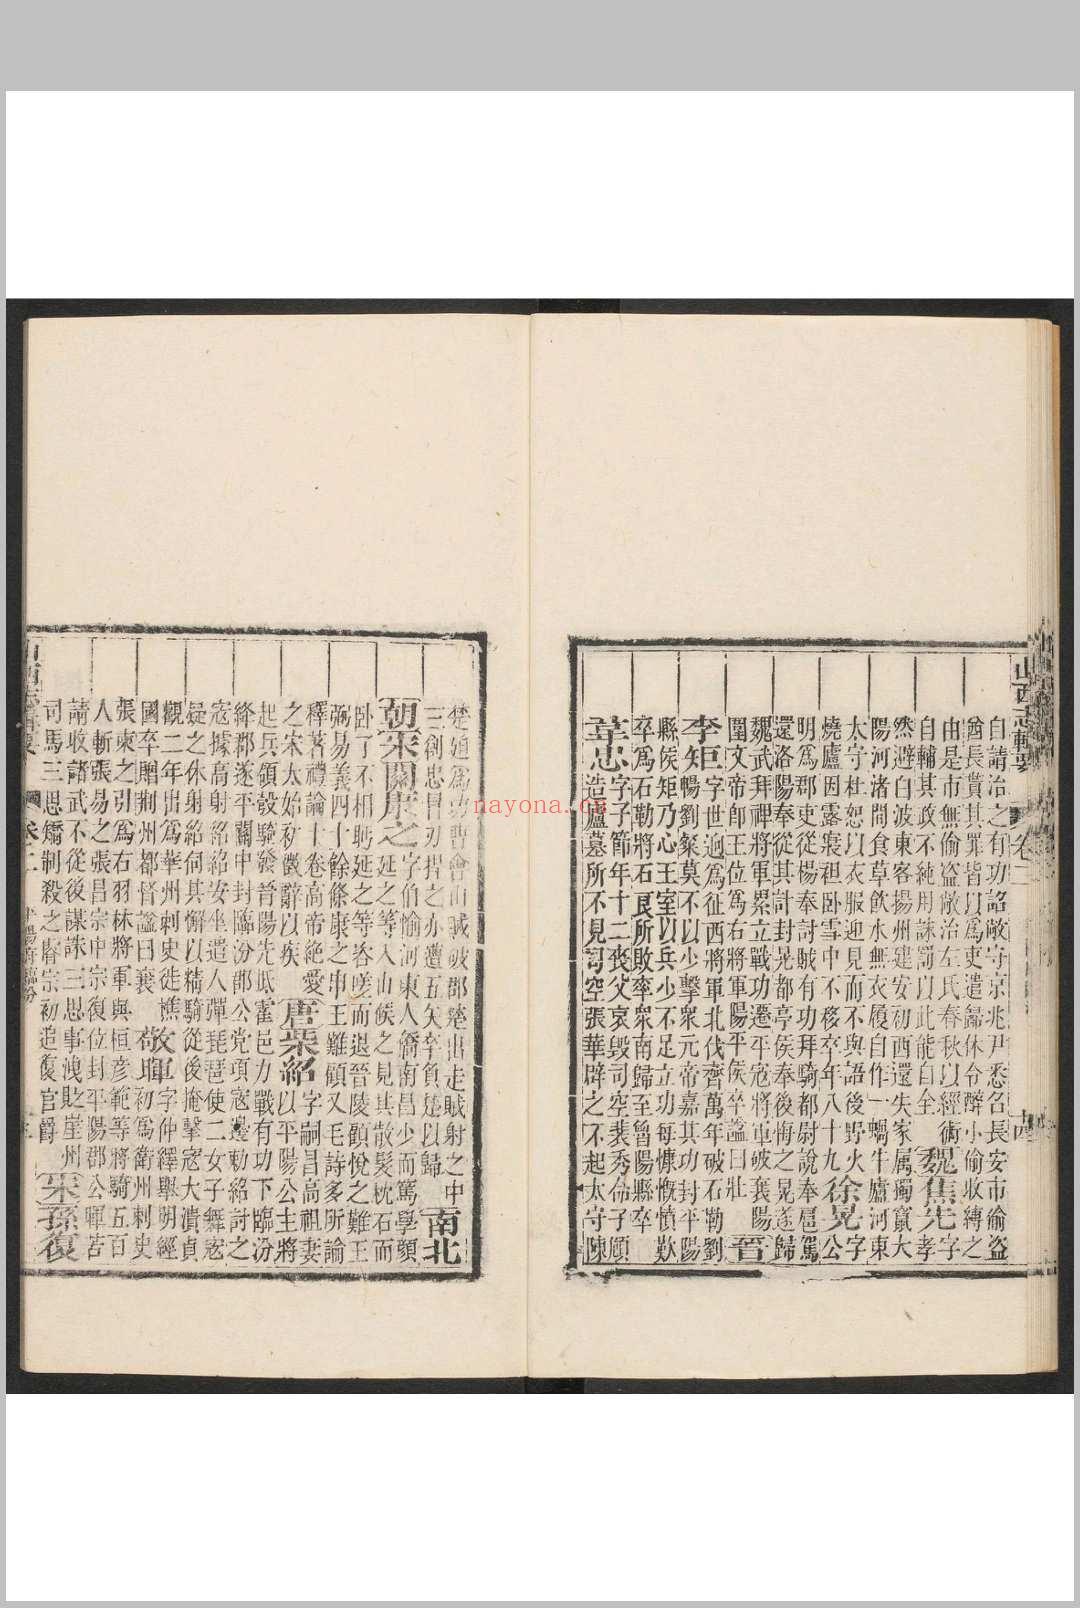 山西志輯要 卷二 十四
自請治之有功詔敞守京兆尹悉召長安市偷盜
酋長貰其罪皆以爲吏遣歸休令醉小偷收縛之
由是市無偷盜敞治左氏春秋以經術
自輔其政不純用誅罰以此能自全 魏焦先 字孝
然避白波東客揚州建安初西還失家属獨竄大
陽河渚間食草飲水無衣履自作一蝸牛廬河東
太守杜恕以衣服迎見而不與語後野火
燒廬因露寢袒卧雪中不移卒年八十九 徐晃 字公
明爲郡吏從楊奉討賊有功拜騎都尉說奉扈駕
還洛陽奉從其計封晃都亭侯奉後悔之晃遂歸
魏武拜裨將軍累立戰功遷平寇將軍破襄陽
圍文帝卽王位爲右將軍陽平侯卒諡曰壯 晉
李矩 字世迥爲征西將軍北伐齊萬年破石勒劉
暢劉粲莫不以少擊衆元帝嘉其功封平陽
縣侯矩乃心王室以兵少不足立功每慷慨憤歎
卒爲石勒將石良所敗率衆南歸至魯陽縣卒
韋忠 字子節年十二喪父哀毀司空裴秀命子頠
造廬墓所不見司空張華辟之不起太守陳
楚迺爲功曹會山賊破郡楚出走賊射之中
三創忠冒刃捍之亦遭五矢卒負楚以歸 南北
朝宋關康之 字伯愉河東人僑南昌少而篤學顔
延之等入山候之見其散髮枕石而
卧了不相眄延之等咨嗟而退晉陵顧悅之難王
弼易義四十餘條康之申王難顧又毛詩多所論
釋著禮論十卷高帝絕愛
之宋太始初徵辭以疾 唐柴紹 字嗣昌高祖妻
以平陽公主將
起兵領殼騎發晉陽先抵霍邑力戰有功下臨汾
絳郡遂平關中封臨汾郡公党項寇邊勅紹討之
寇據高射紹紹安坐遣人彈琵琶使二女子舞寇
疑之休射紹伺其懈以精騎從後掩擊寇大潰貞
觀二年出爲華州刺史徙譙
國卒贈荆州都督諡曰襄 敬暉 字仲繹舉明經
初爲衛州刺史
張柬之引爲右羽林將軍與桓彦範等將騎五百
人斬張易之張昌宗中宗復位封平陽郡公暉苦
請收諸武不從後謀誅三思事洩貶崖州
司馬三思矯制殺之睿宗初追復官爵 宋孫復
卷二
nayona.cn